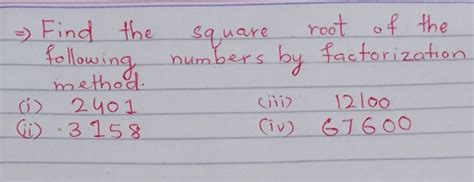 ⇒ Find the square root of the
following numbers by factorization
method.
(i) 2401 (iii) 12100
(ii) 3158 (iv) 67600